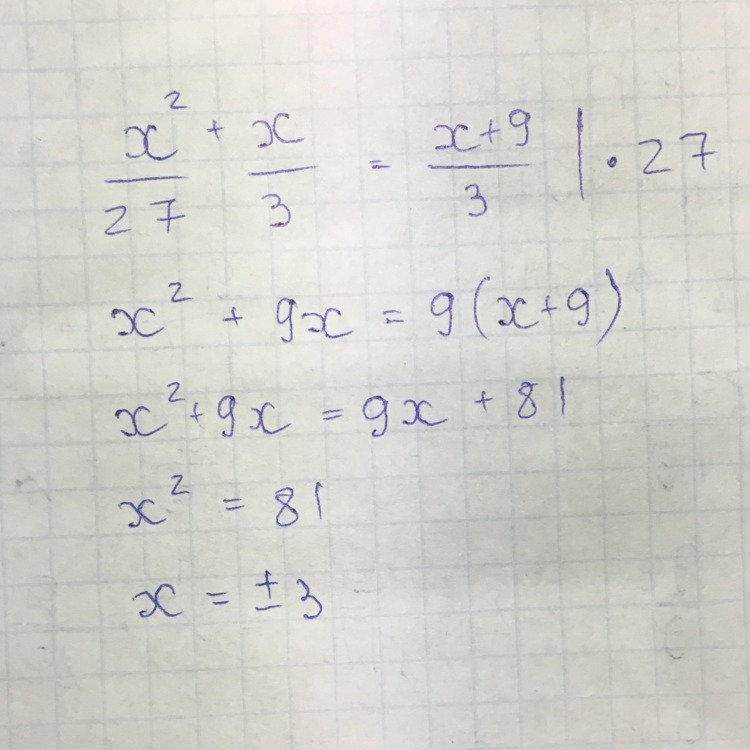 x²/27 + x/3 = (x+9)/3 | · 27
x² + 9x = 9(x+9)
x²+9x = 9x + 81
x² = 81
x = ±3